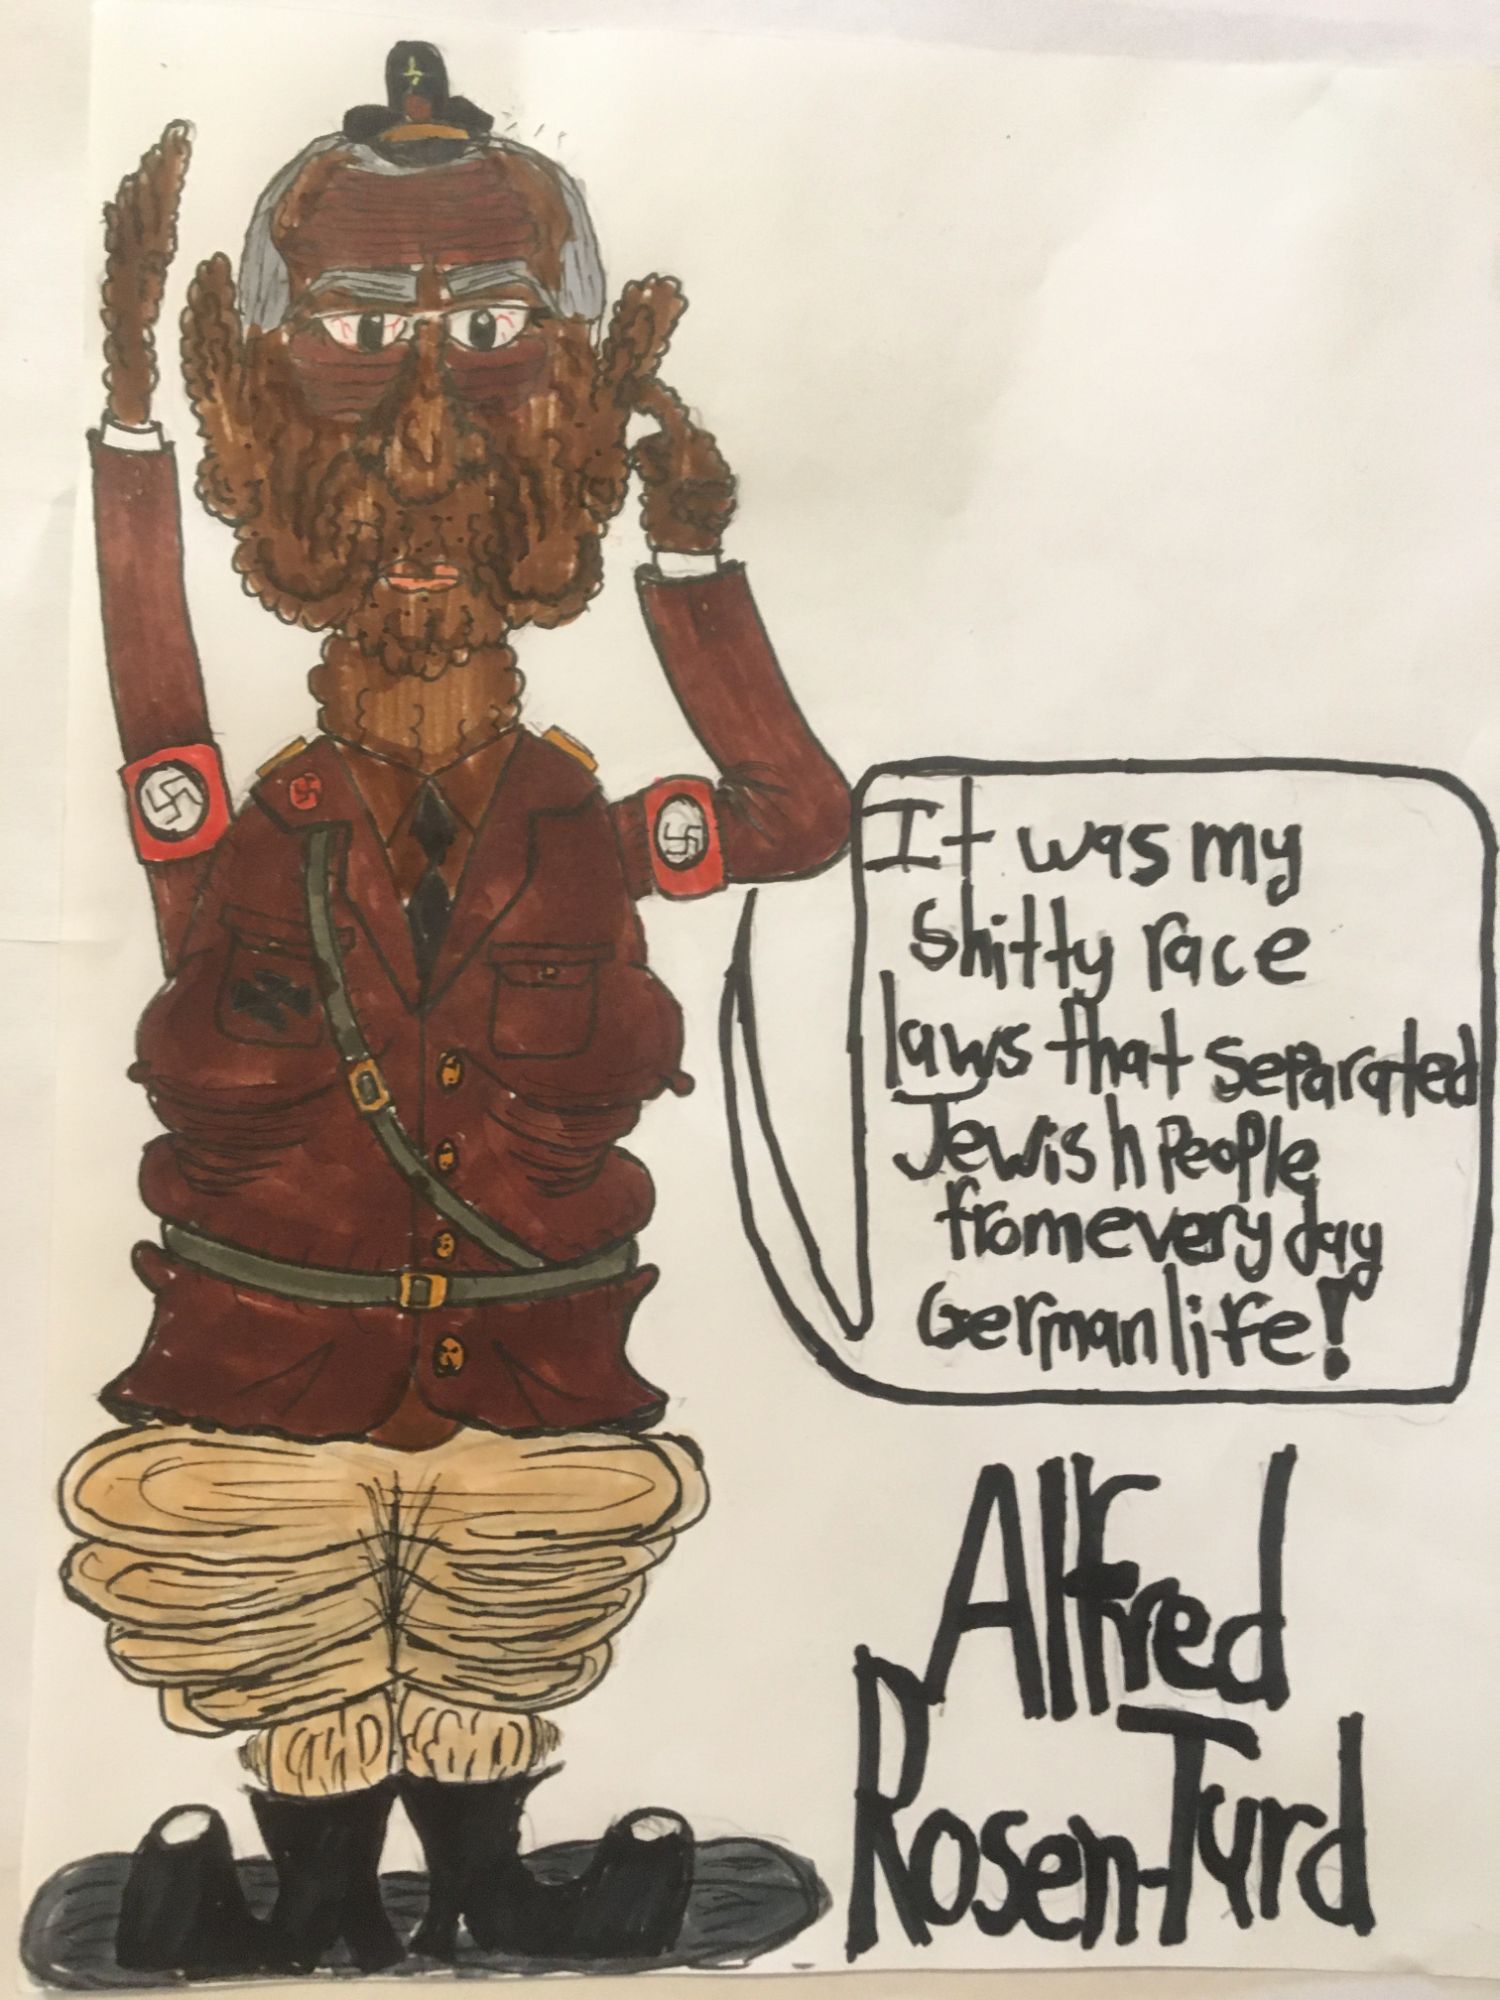 It was my
shitty race
laws that separated
Jewish People
from every day
German life!
Alfred
Rosen-Turd